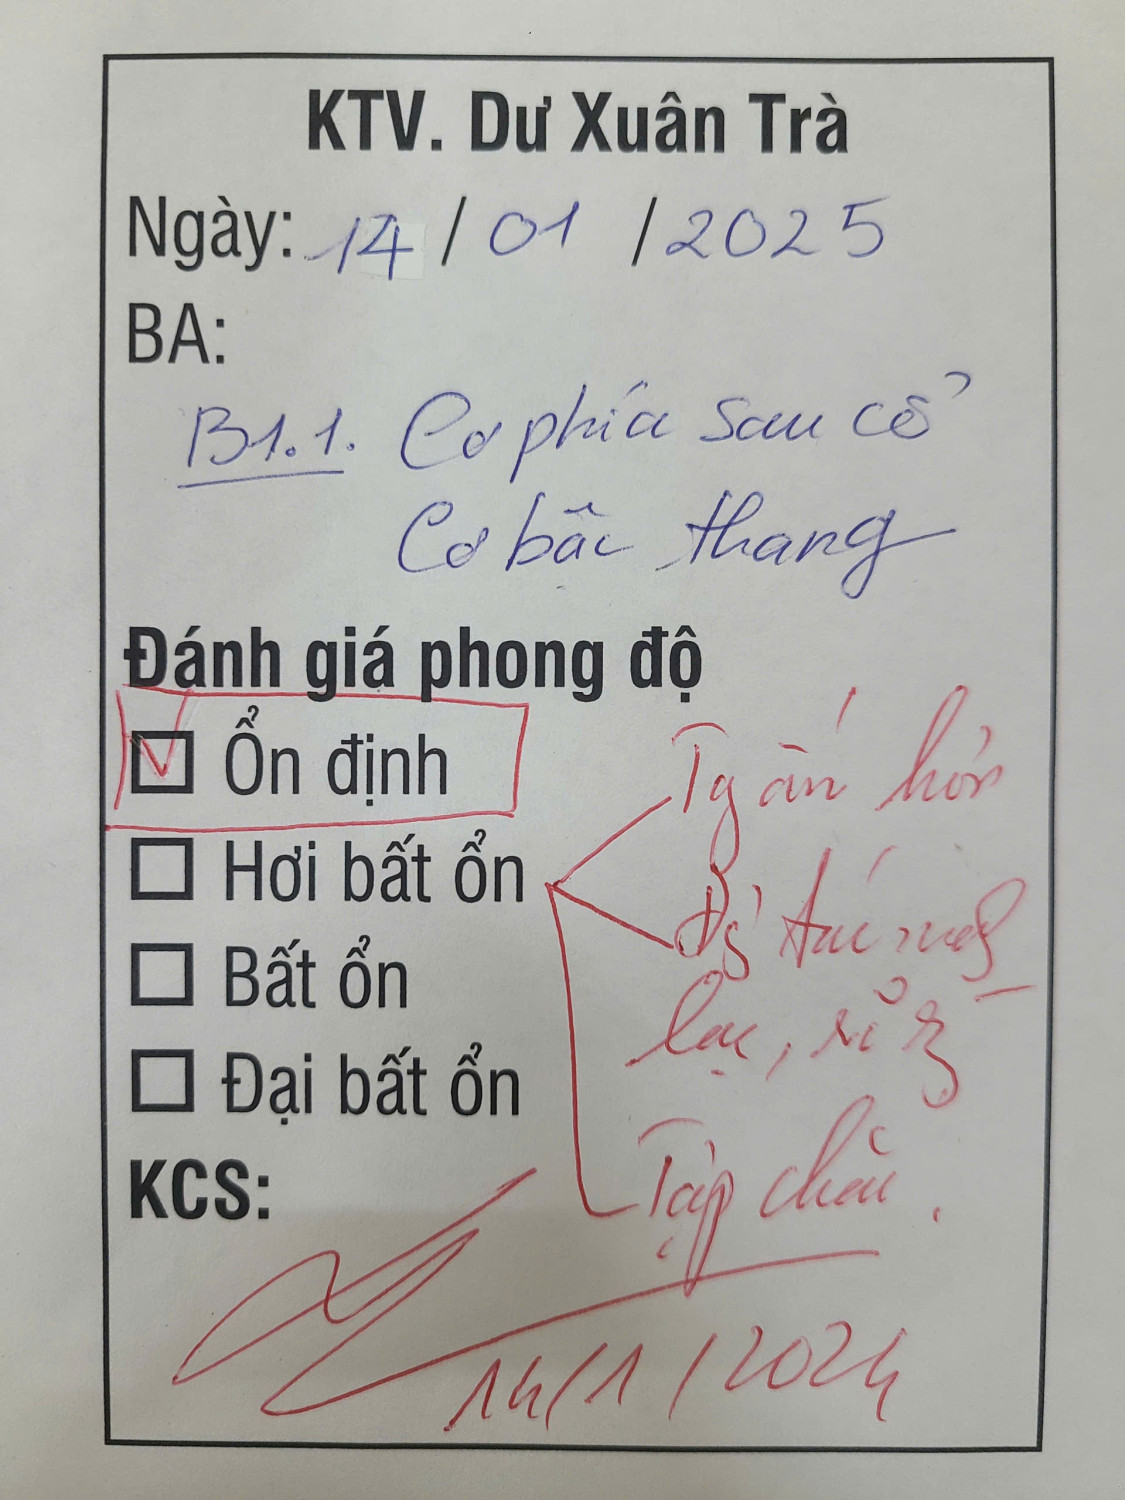 KTV. Dư Xuân Trà
Ngày: 14 / 01 / 2025
BA:
B1.1. Cơ phía sau cổ
Cơ bậc thang
Đánh giá phong độ
Ổn định
Hơi bất ổn
Bất ổn
Đại bất ổn
Tg ấn hơn
lạc, rõ
Tập
KCS:
14/1/2024